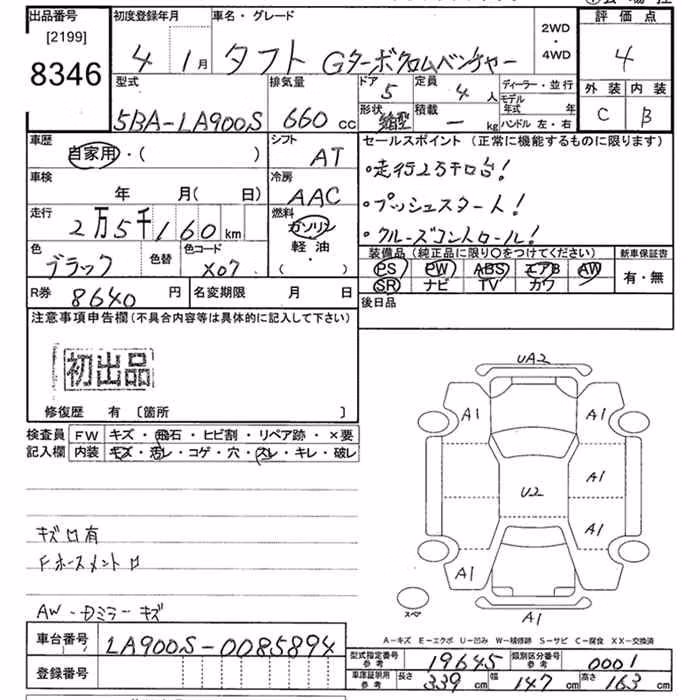 出品番号 初度登録年月 車名・グレード 評価点
[2199]
8346
4 1月 タフト Gターボクロムベンチャー 2WD・4WD 4
型式 排気量 ドア 5 定員 4人 ディーラー・並行 外装 内装
5BA-LA900S 660cc 形状 積載 ー kg モデル年式 年 ハンドル 左・右 C B
車歴 シフト セールスポイント(正常に機能するものに限ります)
自家用・( ) AT ・走行2万キロ台!
車検 年 月( 日) 冷房 AAC ・プッシュスタート!
走行 2万5千160km 燃料 ガソリン 軽油 ・( ) ・クルーズコントロール!
色 ブラック 色替 色コード X07
装備品(純正品に限り○をつけてください) 新車保証書
PS PW ABS エアB AW 有・無
SR ナビ TV カワ
R券 8640円 名変期限 月 日 後日品
注意事項申告欄(不具合内容等は具体的に記入して下さい)
初出品
修復歴 有 〔箇所 〕
検査員 FW キズ・飛石・ヒビ割・リペア跡・×要
記入欄 内装 キズ・汚レ・コゲ・穴・スレ・キレ・破レ
UA2
A1 A1
A1
U2
A1
A1
スペア
A1
キズ口有
Fホースメント口
AW-Dミラーキズ
A-キズ E-エクボ U-凹み W-補修跡 S-サビ C-腐食 XX-交換済
車台番号 LA900S-0085894
登録番号
型式指定番号 参考 19645 類別区分番号 参考 0001
車庫証明用 参考 長さ 339cm 幅 147cm 高さ 163cm